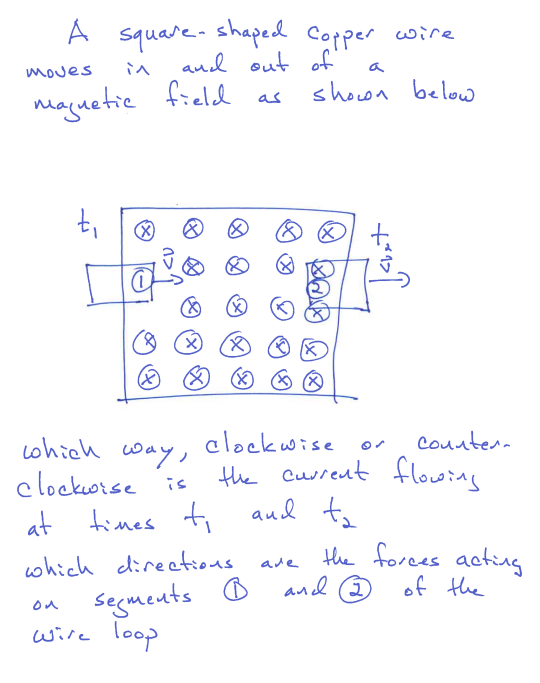 A square-shaped Copper wire
moves in and out of a
magnetic field as shown below
t₁ ⓧ ⓧ ⓧ ⓧ ⓧ t₂
① v⃗ ⓧ ⓧ ⓧ ⓧ v⃗
②
ⓧ ⓧ ⓧ ⓧ
ⓧ ⓧ ⓧ ⓧ ⓧ
ⓧ ⓧ ⓧ ⓧ ⓧ
which way, clockwise or counter-
clockwise is the current flowing
at times t₁ and t₂
which directions are the forces acting
on segments ① and ② of the
wire loop